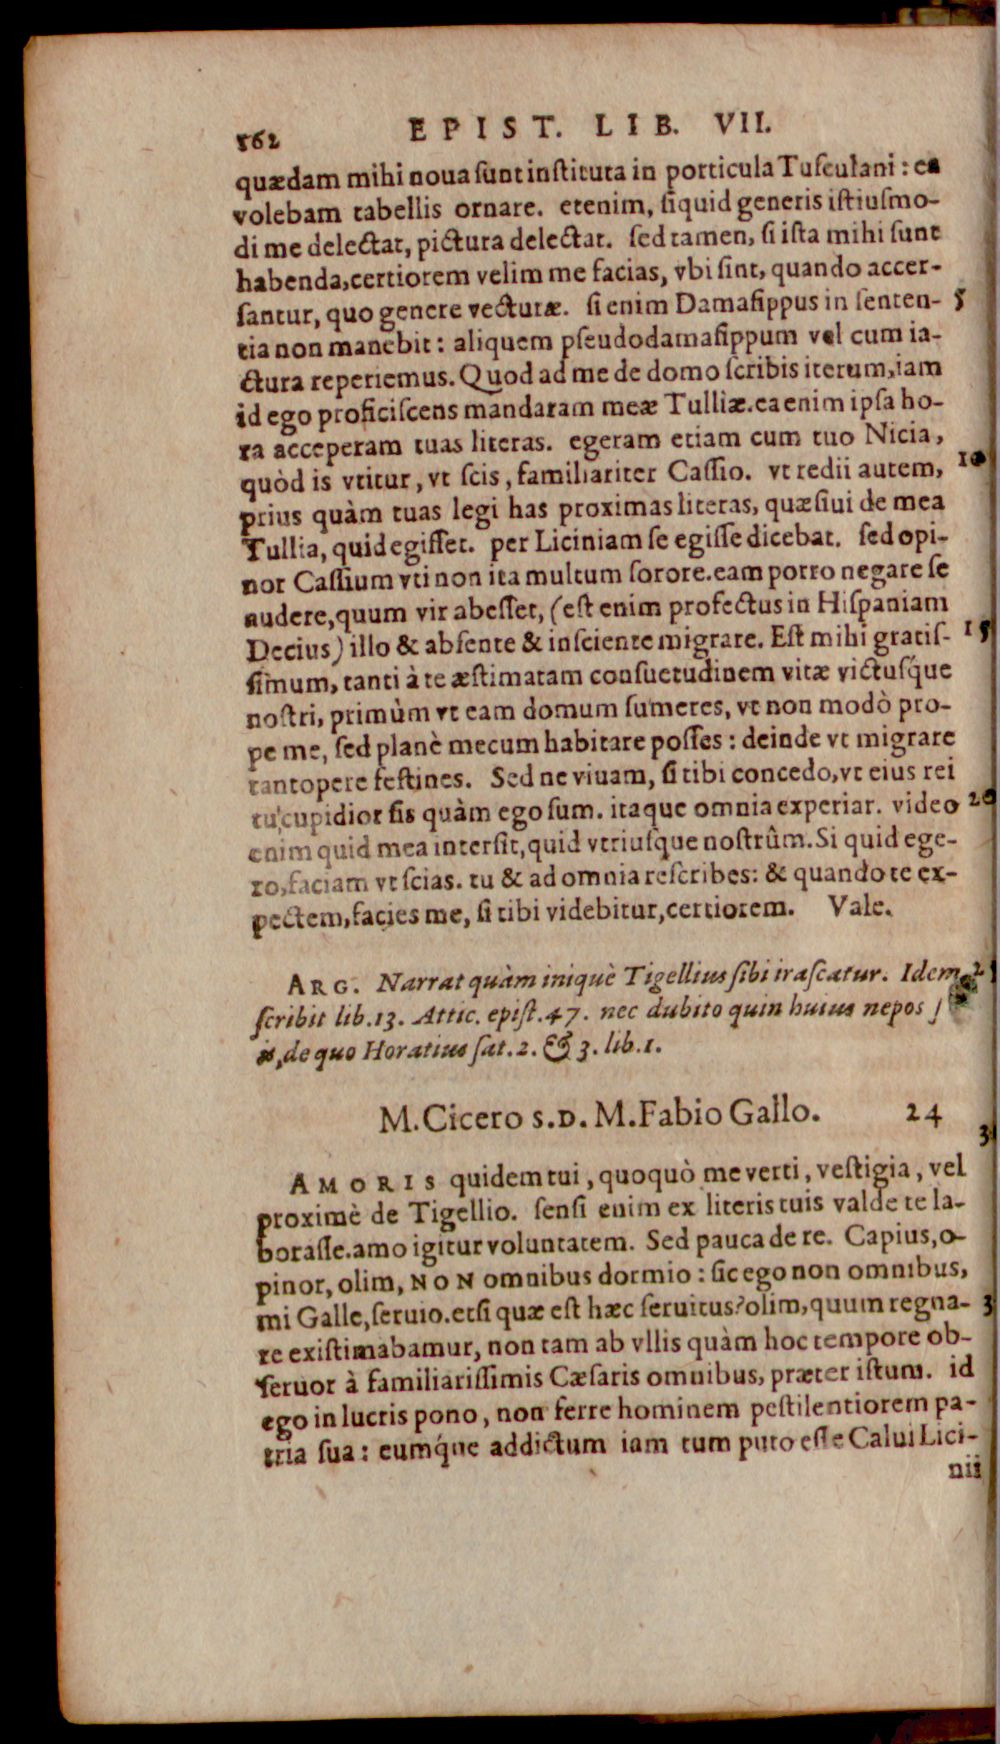 162 EPIST. LIB. VII.
quædam mihi noua ſunt inſtituta in porticula Tuſculani : ea
volebam tabellis ornare. etenim, ſiquid generis iſtiuſmo-
di me delectat, pictura delectat. ſed tamen, ſi iſta mihi ſunt
habenda, certiorem velim me facias, vbi ſint, quando accer-
ſantur, quo genere vecturæ. ſi enim Damaſippus in ſenten- 5
tia non manebit: aliquem pſeudodamaſippum vel cum ia-
ctura reperiemus. Quod ad me de domo ſcribis iterum, iam
id ego proficiſcens mandaram meæ Tulliæ. ea enim ipſa ho-
ra acceperam tuas literas. egeram etiam cum tuo Nicia,
quòd is vtitur, vt ſcis, familiariter Caſſio. vt redii autem, 10
prius quàm tuas legi has proximas literas, quæſiui de mea
Tullia, quid egiſſet. per Liciniam ſe egiſſe dicebat. ſed opi-
nor Caſſium vti non ita multum ſorore. eam porro negare ſe
audere, quum vir abeſſet, (eſt enim profectus in Hiſpaniam
Decius) illo & abſente & inſciente migrare. Eſt mihi gratiſ- 15
ſimum, tanti à te æſtimatam conſuetudinem vitæ victuſq́ue
noſtri, primùm vt eam domum ſumeres, vt non modò pro-
pe me, ſed planè mecum habitare poſſes : deinde vt migrare
tantopere feſtines. Sed ne viuam, ſi tibi concedo, vt eius rei
tu cupidior ſis quàm ego ſum. itaque omnia experiar. video 20
enim quid mea interſit, quid vtriuſque noſtrûm. Si quid ege-
ro, faciam vt ſcias. tu & ad omnia reſcribes: & quando te ex-
pectem, facies me, ſi tibi videbitur, certiorem. Vale.
ARG. Narrat quàm iniquè Tigellius ſibi iraſcatur. Idem
ſcribit lib.13. Attic. epiſt.47. nec dubito quin huius nepos
is, de quo Horatius ſat.2. & 3. lib.1.
M. Cicero S.D. M. Fabio Gallo. 24
AMORIS quidem tui, quoquò me verti, veſtigia, vel
proximè de Tigellio. ſenſi enim ex literis tuis valde te la-
boraſſe. amo igitur voluntatem. Sed pauca de re. Capius, o-
pinor, olim, NON omnibus dormio : ſic ego non omnibus,
mi Galle, ſeruio. etſi quæ eſt hæc ſeruitus? olim, quum regna- 3
re exiſtimabamur, non tam ab vllis quàm hoc tempore ob-
ſeruor à familiariſſimis Cæſaris omnibus, præter iſtum. id
ego in lucris pono, non ferre hominem peſtilentiorem pa-
tria ſua : eumq́ue addictum iam tum puto eſſe Calui Lici-
nii